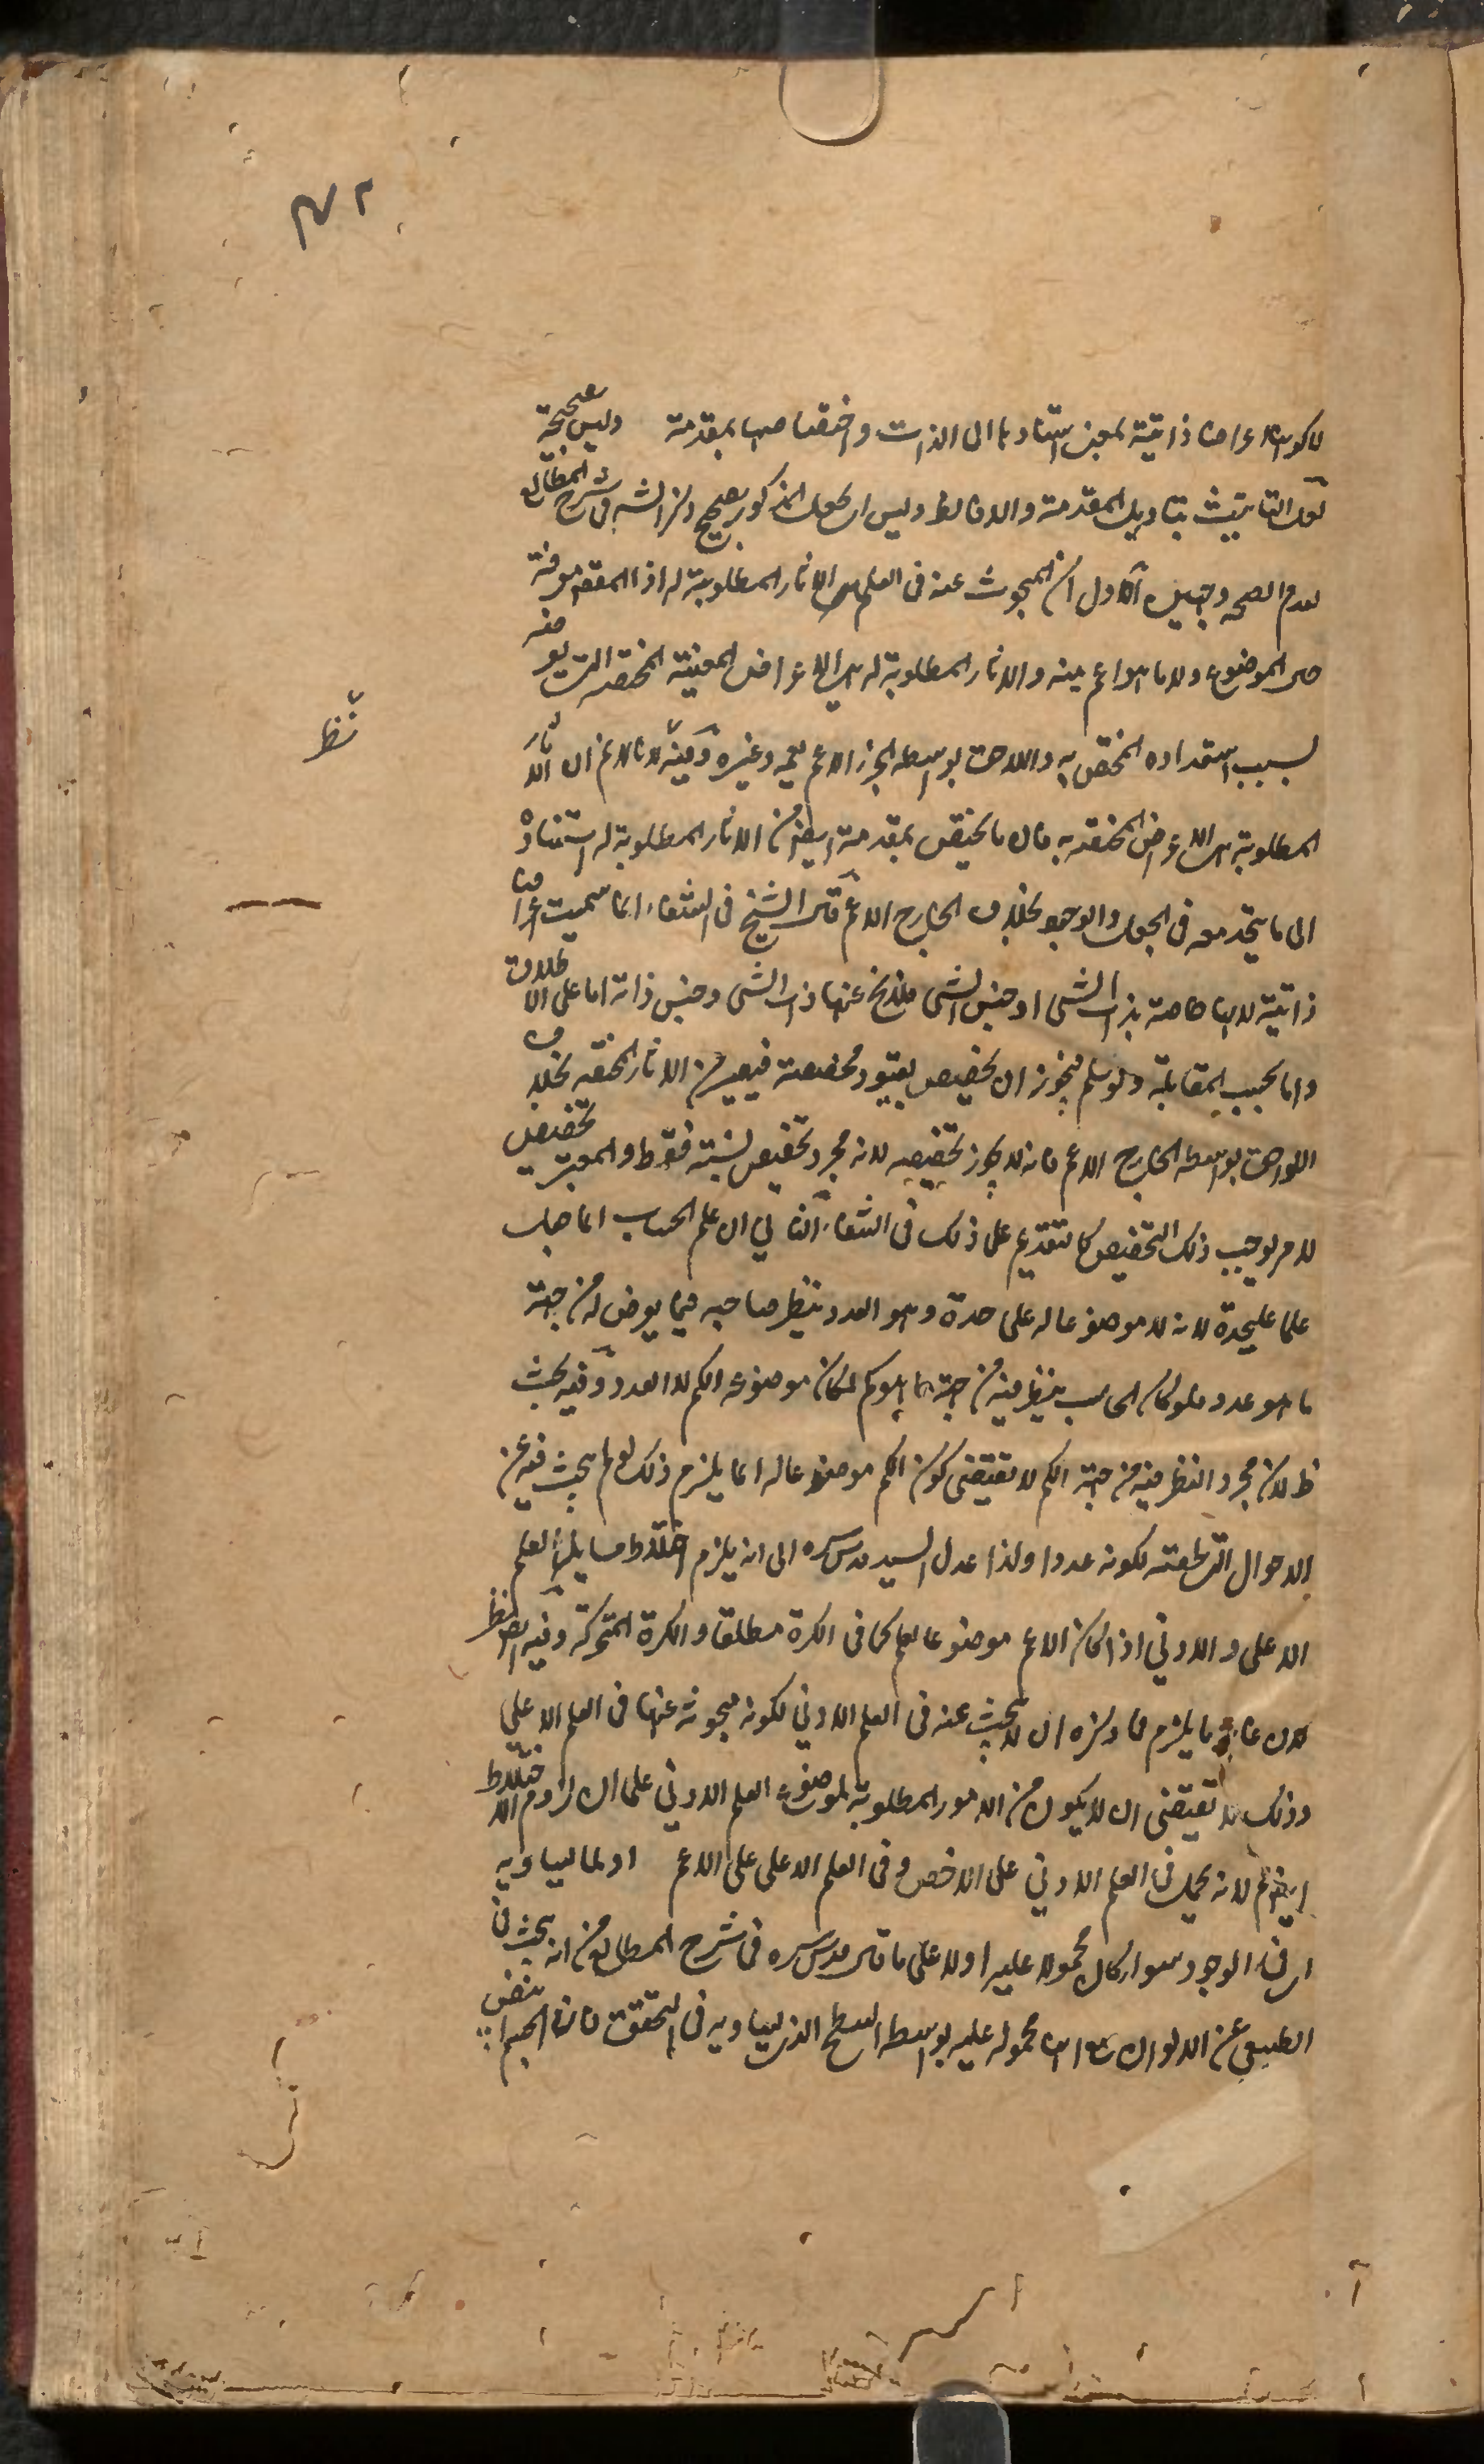 لا كونها اعراضا ذاتية بمعنى استنادها الى الذات واختصاصها بمقدمة وليس بصحيحة
لعل التانيث بتاويل المقدمة والا فالظ وليس القول المذكور بصحيح وذكر الشه في شرح المطالع
لعدم الصحة وجهين الاول ان المبحوث عنه في العلم هي الاثار المطلوبة له اذ المقصد معرفة
حال الموضوع ولا ما هو اعم منه والاثار المطلوبة له هي الاعراض المعينة المختصة التي تعرضه
بسبب استعداده المختص به واللاحق بواسطة الجزء الاعم يعمه وغيره وفيه لانا لا نم ان الاثار
المطلوبة هي الاعراض المختصة به فان ما يختص بمقدمة ايضا من الاثار المطلوبة له استنادها
الى ما يتحد معه في الجعل والوجود بخلاف الخارج الاعم قال الشيخ في الشفاء انما سميت اعراضا
ذاتية لانها خاصة بذات الشي او جنس الشي فلا يخ عنها ذات الشي وجنس ذاته اما على الاطلاق
واما بحسب المقابلة ولو سلم فيجوز ان يخصص بقيود مخصصة فيصير من الاثار المختصة بخلاف
اللواحق بواسطة الخارج الاعم فانه لا يجوز تخصيصه لانه مجرد تخصيص لنسبته فقط والمعتبر تخصيص
لامر يوجب ذلك التخصيص كما تقديم على ذلك في الشفاء الثاني ان علم الحساب انما جعل
علما عليحدة لانه لا موضوعا له على حدة وهو العدد ينظر صاحبه فيما يعرض له من جهة
ما هو عدد فلو كان الحاسب ينظر فيه من جهة ما هو كم لكان موضوعه الكم لا العدد وفيه بحث
ظ لان مجرد النظر فيه من جهة الكم لا يقتضى كون الكم موضوعا له انما يلزم ذلك لو لم يبحث فيه عن
الاحوال التي تلحقته لكونه عددا ولذا عدل السيد قدس سره الى انه يلزم اختلاط مسايل العلم
الاعلى والادنى اذا كان الاعم موضوعا لعلم كما فى الكرة مطلقا والكرة المتحركة وفيه ايضا نظر
لان غاية ما يلزم مما ذكره ان لا يبحث عنه فى العلم الادنى لكونه مبحوثه عنها فى العلم الاعلى
وذلك لا يقتضى ان لا يكون من الامور المطلوبة لموضوع العلم الادنى على ان لزوم الاختلاط
ايضا مم لانه يحمل فى العلم الادنى على الاخص وفى العلم الاعلى على الاعم او لما يساويه
اى فى الوجود سواء كان محمولا عليه اولا على ما قال قدس سره فى شرح المطالع من انه يبحث فى
الطبيعى عن الالوان مع انها محمولة عليه بواسطة السطح الذى يساويه فى التحقق فان الجسم
نظ